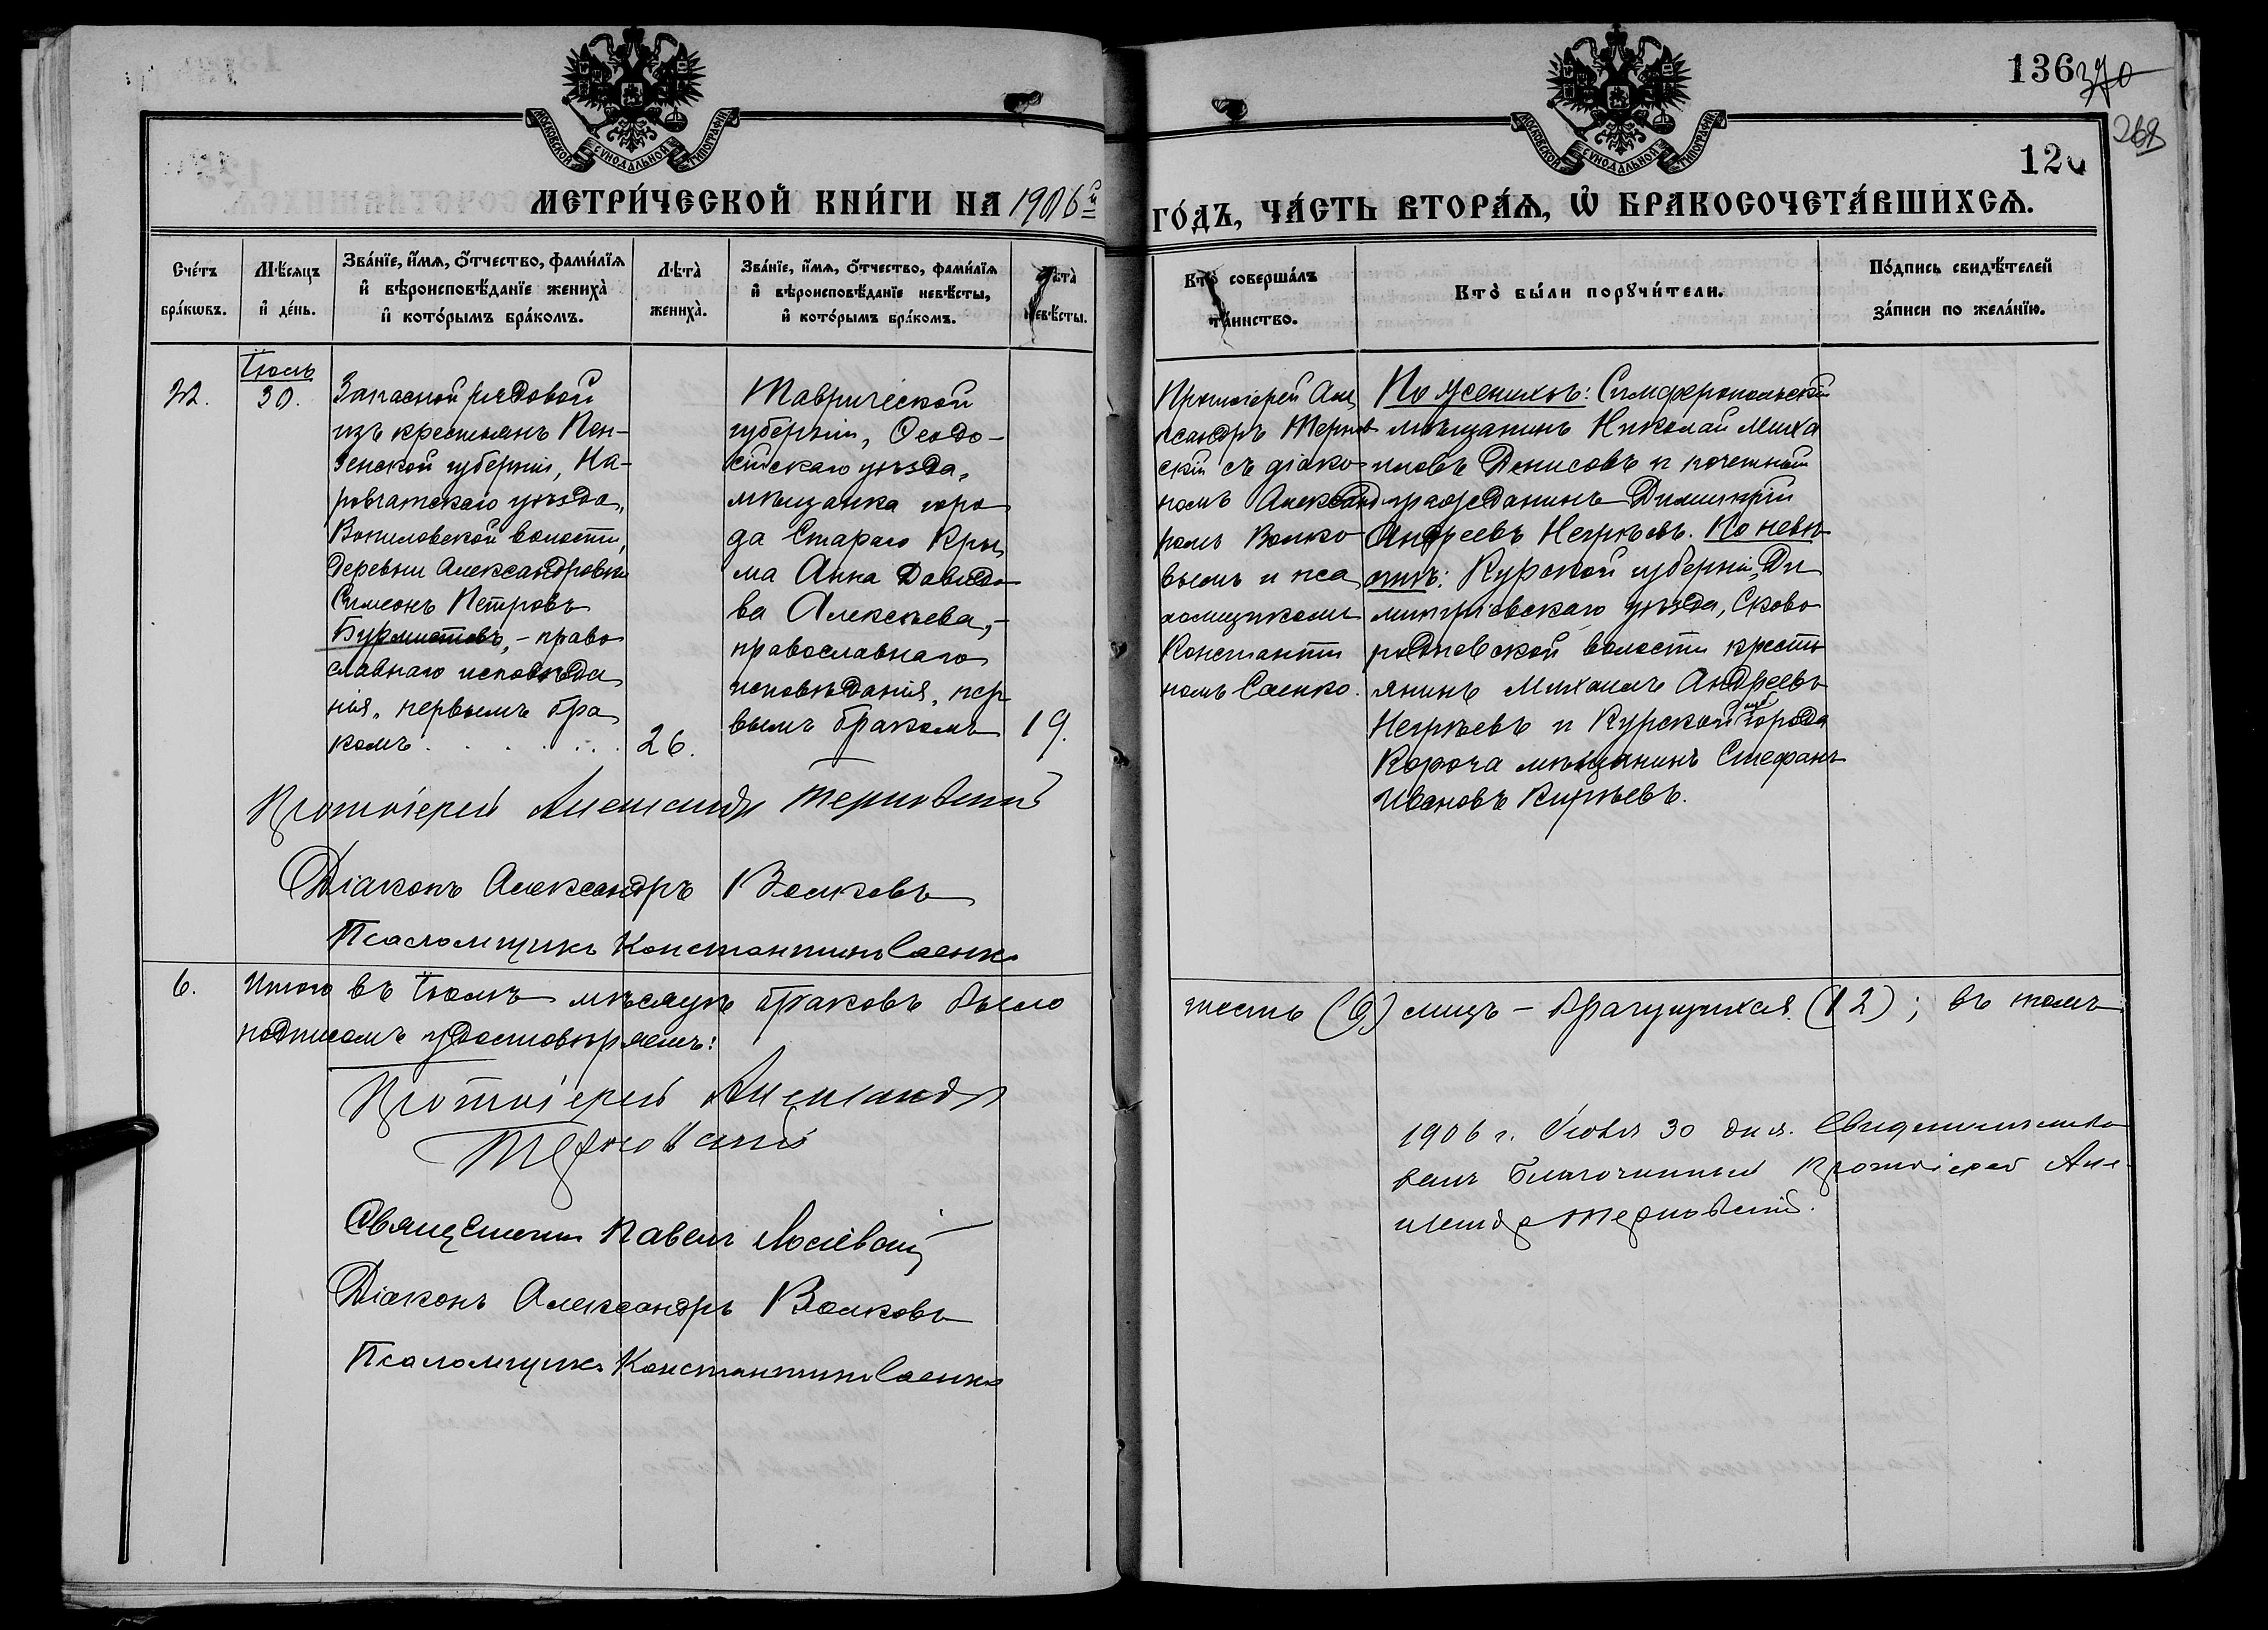 136 370
268
120
МОСКОВСКОЙ СѴНОДАЛЬНОЙ ТИПОГРАФІИ
МОСКОВСКОЙ СѴНОДАЛЬНОЙ ТИПОГРАФІИ
МЕТРИ́ЧЕСКОЙ КНИ́ГИ НА 1906й
ГО́ДЪ, ЧА́СТЬ ВТОРА́Ѧ, Ѽ БРАКОСОЧЕТА́ВШИХСѦ.
Сче́тъ
бра́кѡвъ.
Мѣ́сяцъ
и҆ де́нь.
Зва́нїе, и҆́мѧ, о҆́тчество, фами́лїѧ
и҆ вѣроисповѣ́данїе жениха̀
и҆ кото́рымъ бра́комъ.
Лѣта̀
жениха̀.
Зва́нїе, и҆́мѧ, о҆́тчество, фами́лїѧ
и҆ вѣроисповѣ́данїе невѣ́сты,
и҆ кото́рымъ бра́комъ.
Лѣта̀
невѣ́сты.
Кто̀ соверша́лъ
та́инство.
Кто̀ бы́ли порꙋчи́тели.
По́дпись свидѣ́телей
за́писи по жела́нїю.
22.
Іюль
30.
Запасной рядовой
изъ крестьянъ Пен-
зенской губерніи, На-
ровчатскаго уѣзда,
волости,
деревни Александровки
Симеонъ Петровъ
Бурмистовъ, - право
славнаго исповѣда
нія, первымъ бра
комъ . . . . . . .
26.
Таврической
губерніи, Ѳеодо-
сійскаго уѣзда,
мѣщанка горо
да Стараго Кры
ма Анна Давидо
ва Алексѣева, -
православнаго
исповѣданія, пер
вымъ бракомъ
19.
Протоіерей Але
ксандръ Тернов
скій съ діако
номъ Александ
ромъ Волко
вымъ и пса
ломщикомъ
Константи
номъ Саенко.
По женихѣ: Симферопольскій
мѣщанинъ Николай Миха
иловъ Денисовъ и почетный
гражданинъ Димитрій
Андреевъ Негрѣевъ. По невѣ
стѣ: Курской губерніи, Ди
митріевскаго уѣзда, Сково
родневской волости кресть
янинъ Михаилъ Андреевъ
Негрѣевъ и Курской губ города
Короча мѣщанинъ Стефанъ
Ивановъ Кирѣевъ.
Протоіерей Александръ Терновскій
Діаконъ Александръ Волковъ
Псаломщикъ Константинъ Саенко
6.
Итого въ Іюлѣ мѣсяцѣ браковъ было
шесть (6) лицъ - брачущихся (12); въ томъ
подписомъ удостовѣряемъ:
Протоіерей Александръ
Терновскій
Священникъ Павелъ
Діаконъ Александръ Волковъ
Псаломщикъ Константинъ Саенко
1906 г. Іюля 30 дня. Свидѣтельство
валъ Благочинный Протоіерей Але-
ксандръ Терновскій.